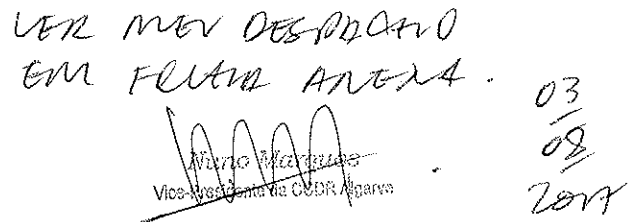 VER MEU DESPACHO
EM FOLHA ANEXA.
03
08
2017
Nuno Marques
Vice-Presidente da CCDR Algarve